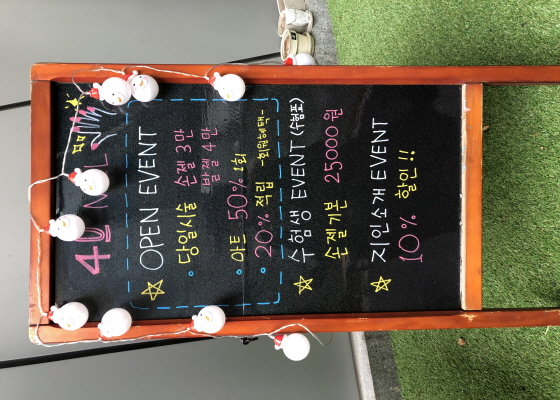 OPEN EVENT
당일시술 손젤 3만
발젤 4만
아트 50% 1회
20% 적립 -회원혜택-
수험생 EVENT (수험표)
손젤기본 25000원
지인소개 EVENT
10% 할인!!